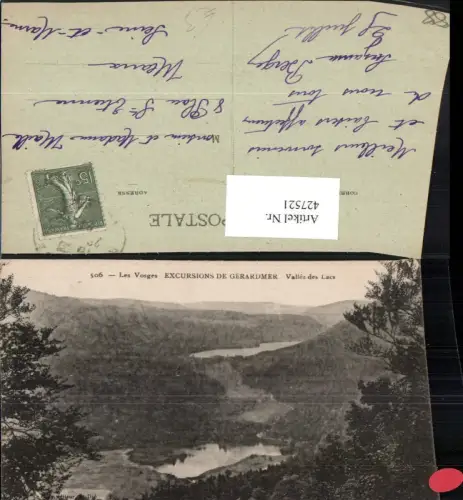 Meilleurs souvenirs
et baisers affectueux
à vous tous
Suzanne
28 juillet
Monsieur et Madame
8 Place St Etienne
Meaux
Seine-et-Marne
POSTALE
ADRESSE
15c
Artikel Nr.
427521
506 — Les Vosges EXCURSIONS DE GERARDMER Vallée des Lacs